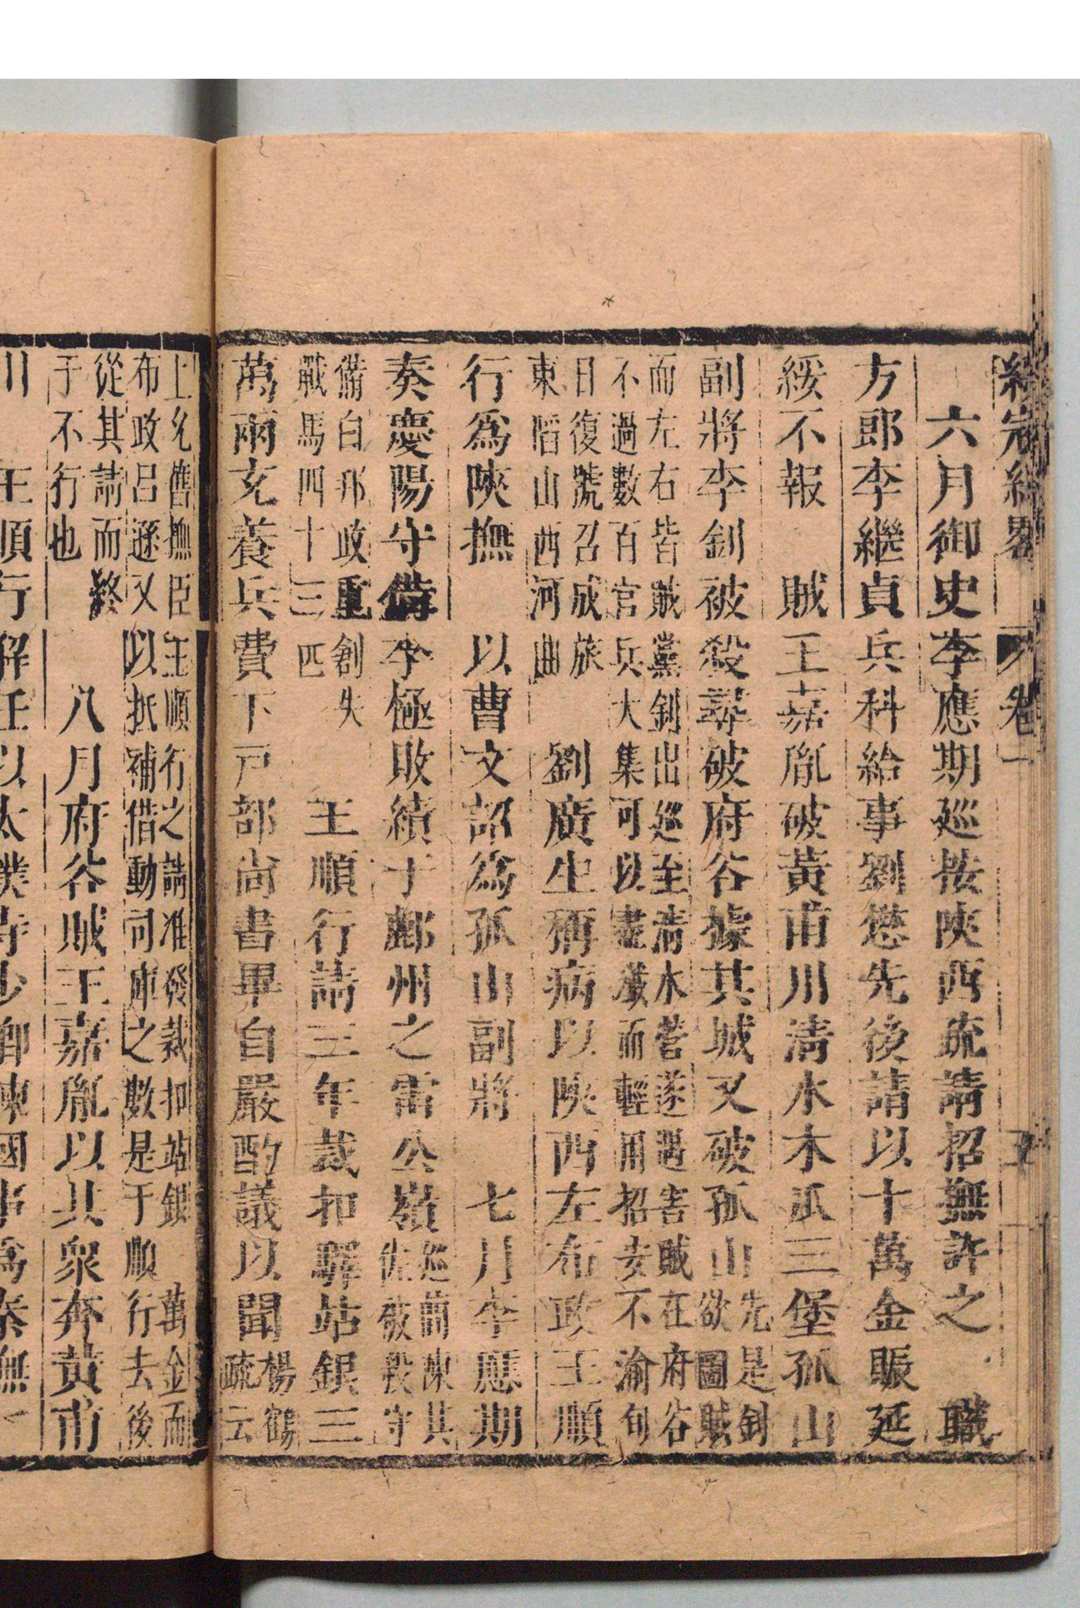 綏寇紀畧 卷一 五
六月御史李應期巡按陝西疏請招撫許之 職
方郎李繼貞兵科給事劉懋先後請以十萬金賑延
綏不報 賊王嘉胤破黃甫川清水木瓜三堡孤山
副將李釗被殺尋破府谷據其城又破孤山先是釗
欲圖賊
而左右皆賊黨釗出巡至清水營遂遇害賊在府谷
不過數百官兵大集可以盡殲而輕用招安不淪旬
日復號召成旅
東蹈山西河曲
劉廣生稱病以陝西左布政王順
行爲陝撫 以曹文詔爲孤山副將 七月李應期
奏慶陽守備李極敗績于鄜州之雷公嶺巡簡陳其
佐被殺守
備白邦政重創失
戰馬四十三匹
王順行請三年裁扣驛站銀三
萬兩充養兵費下戸部尚書畢自嚴酌議以聞楊鶴
疏云
上允舊撫臣王順行之請准發裁扣站銀 萬金而
布政呂遜又以抵補借動司庫之數是于順行去後
從其請而終
于不行也
八月府谷賊王嘉胤以其衆奔黃甫
川 王順行解任以太僕寺少卿練國事爲秦撫